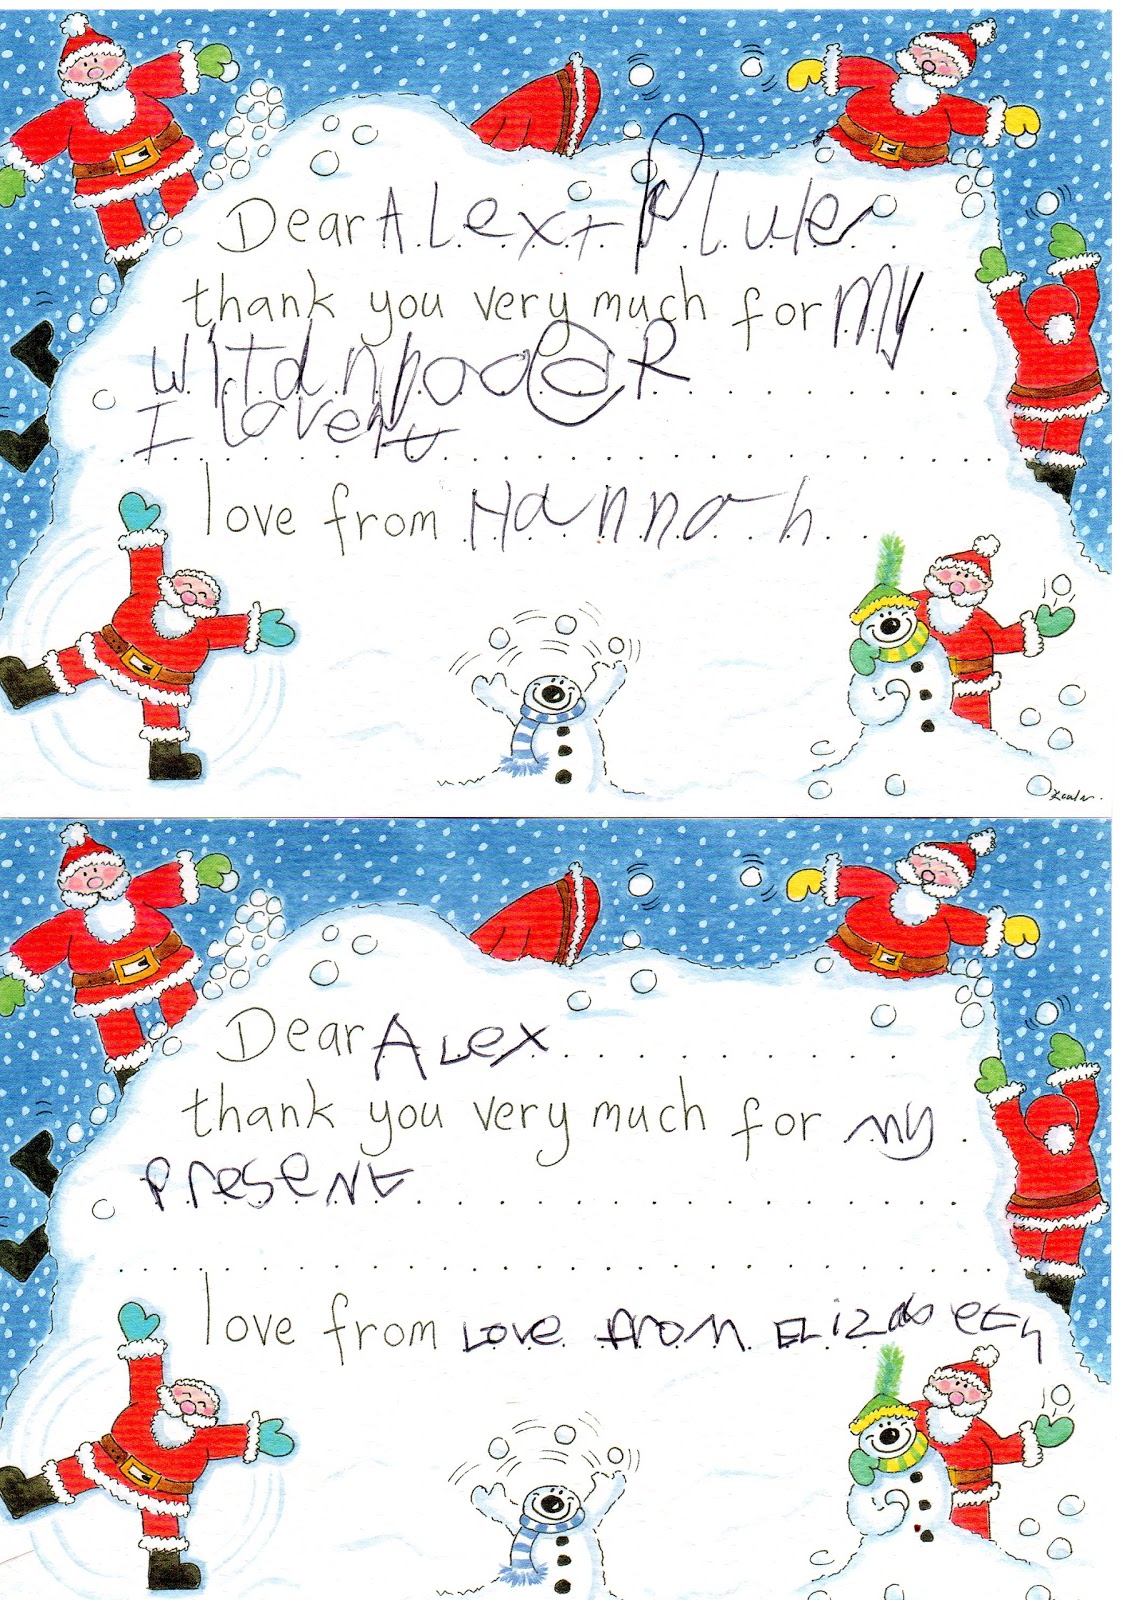 Dear Alex + Pluler
thank you very much for my
witdnbodaR
I Love it
love from Hannah
Dear ALex
thank you very much for my
present
love from Love from ELizabeth